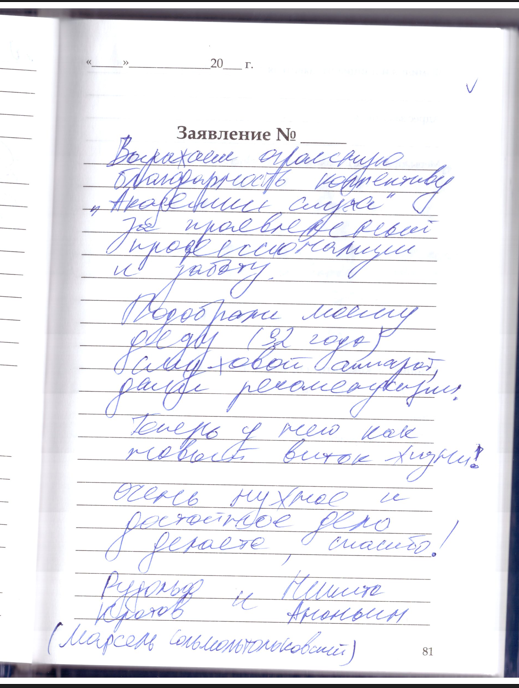 «____»____________20___ г.
Заявление № _____
Выражаем огромную
благодарность коллективу
„Академии слуха"
за проявленный
профессионализм
и заботу.
Подобрали моему
деду (92 года)
слуховой аппарат,
дали рекомендации.
Теперь у него как
новый виток жизни!
Очень нужное и
достойное дело
делаете, спасибо!
Рудольф и Никита
Кротов Ананьин
(Марсель
81